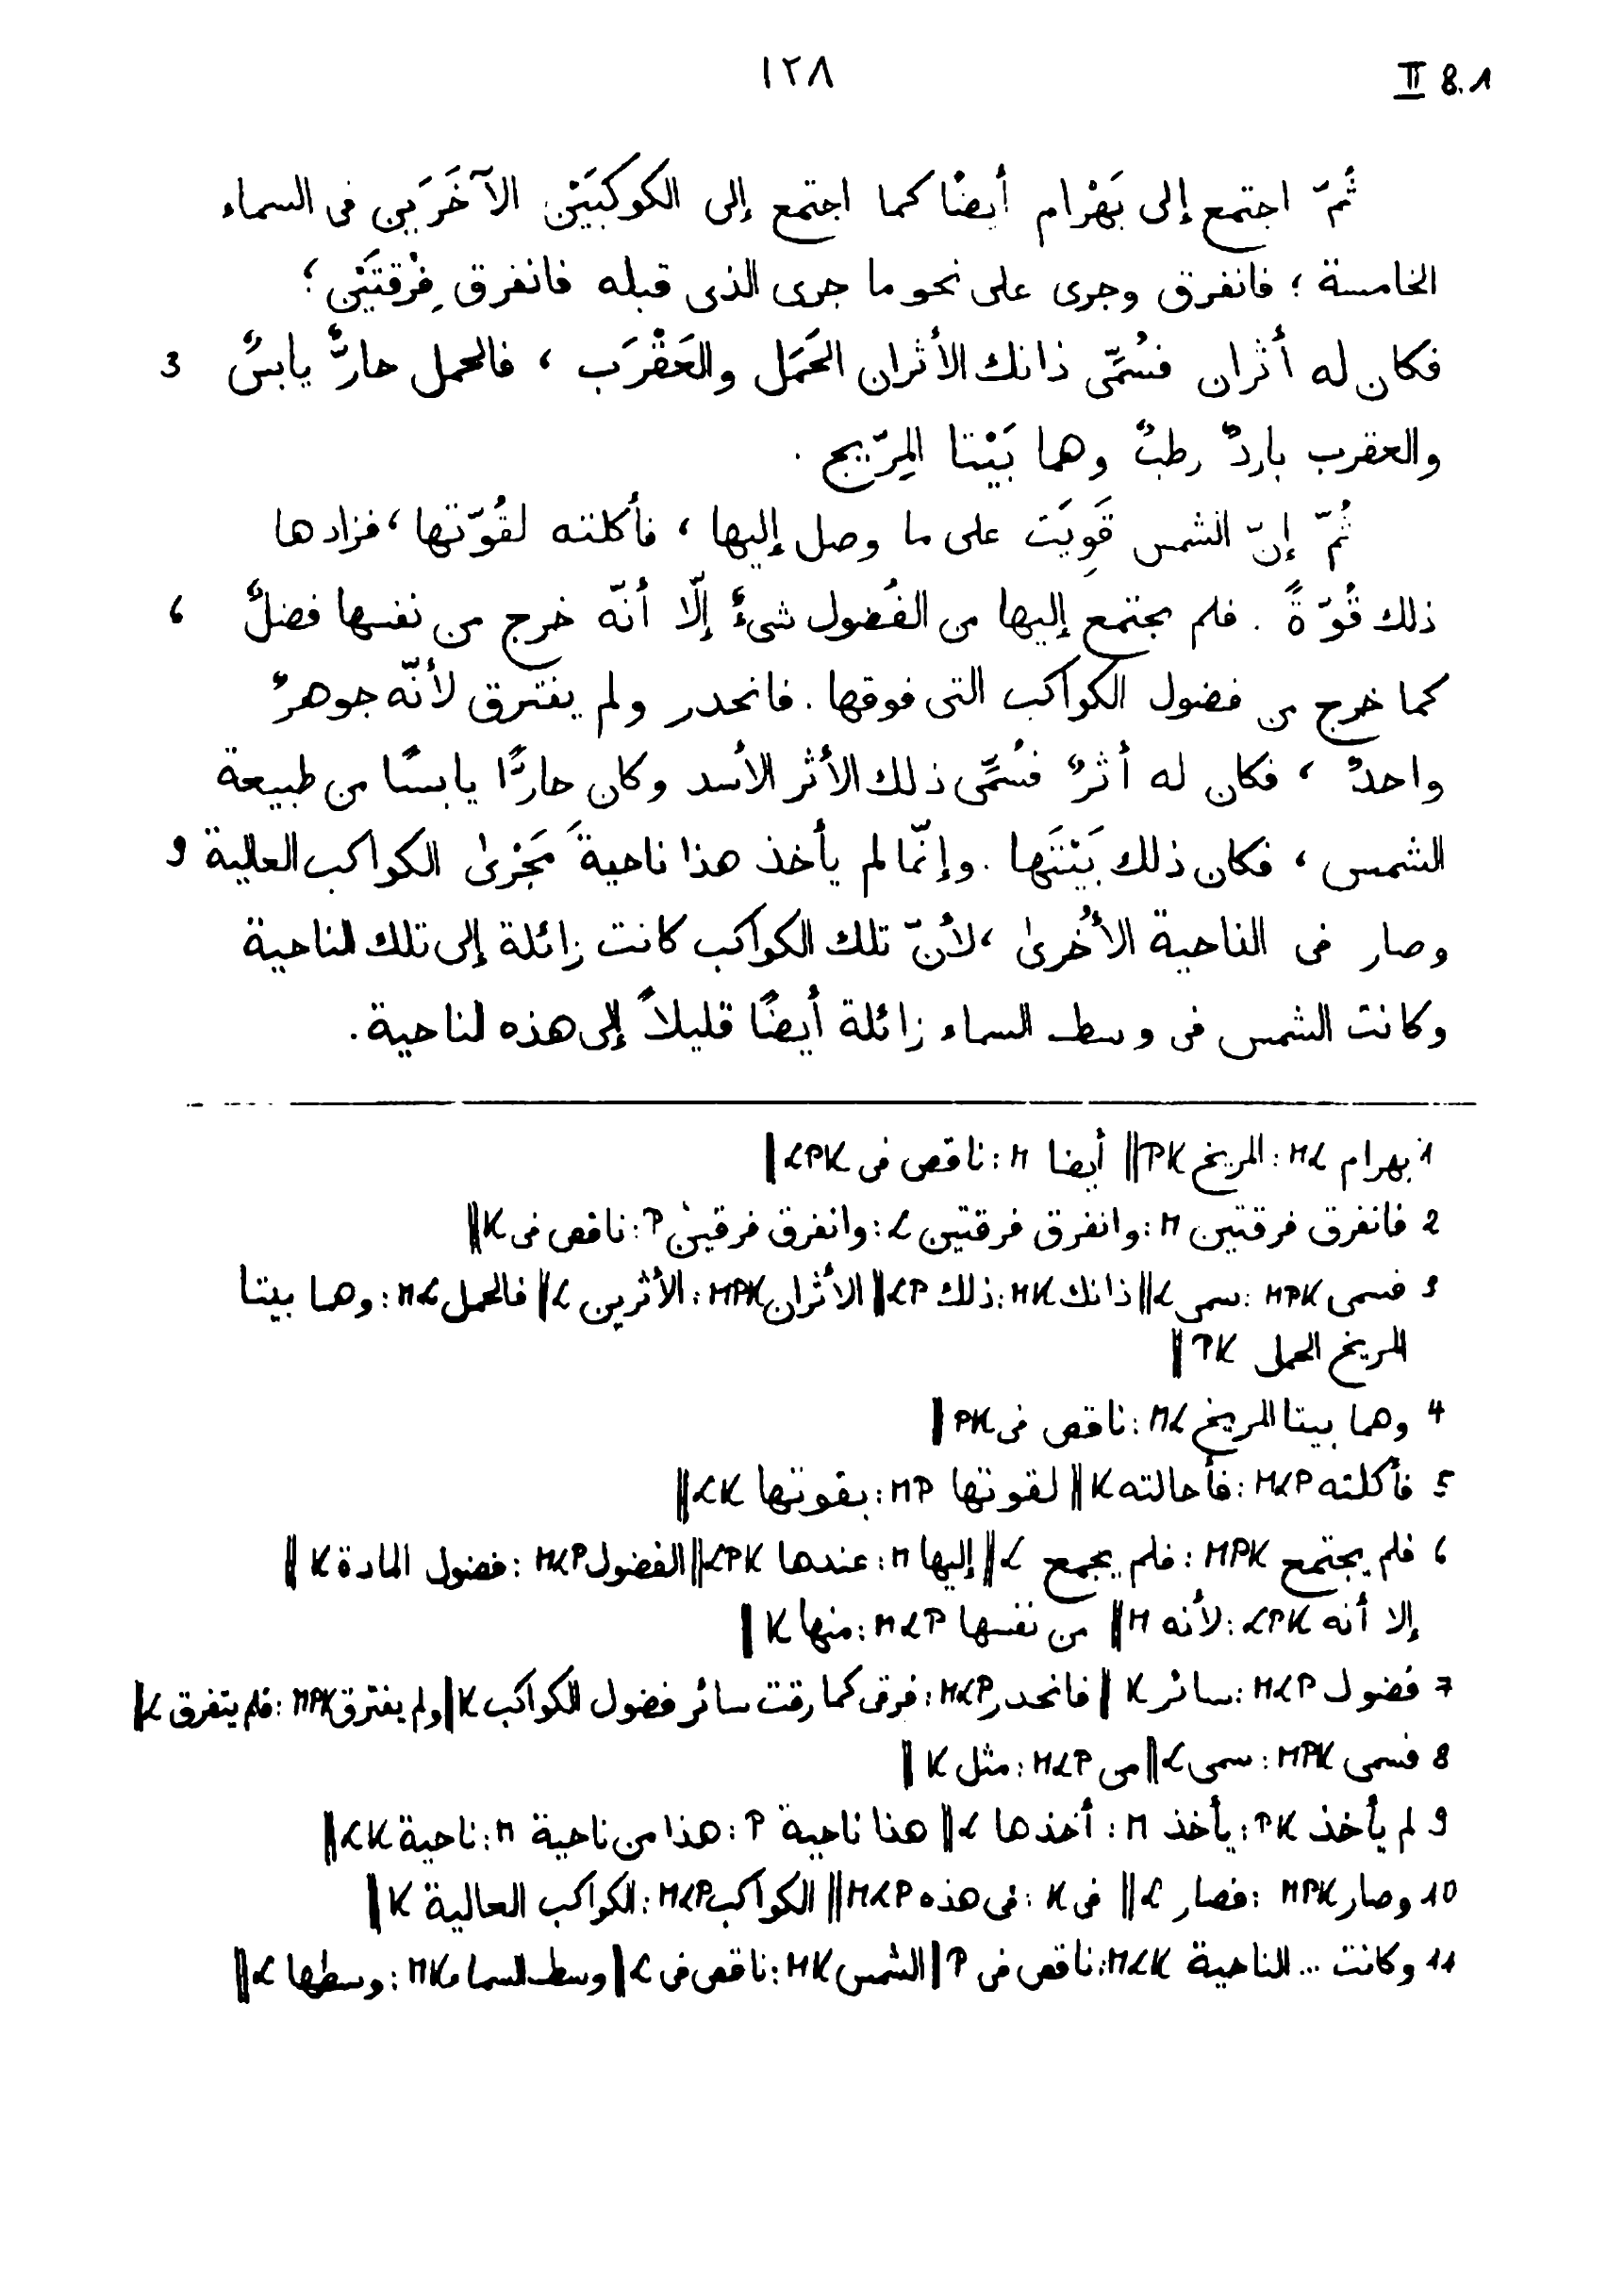 ١٢٨
II 8.1
ثُمّ اجتمع إلى بَهْرام أيضًا كما اجتمع إلى الكوكبَيْن الآخَرَين فى السماء
الخامسة ؛ فانفرق وجرى على نحو ما جرى الذى قبله فانفرق فِرْقتَيْن ؛
فكان له أثران فسُمِّى ذانك الأثران الحَمَل والعَقْرَب ، فالحمل حارٌّ يابسٌ 3
والعقرب باردٌ رطبٌ وهما بَيْتا المِرّيخ .
ثُمّ إنّ الشمس قَوِيَت على ما وصل إليها ، فأكلته لقُوّتها ، فزادها
ذلك قُوّةً . فلم يجتمع إليها من الفُضول شىءٌ إلّا أنّه خرج من نفسها فضلٌ 6
كما خرج من فضول الكواكب التى فوقها . فانحدر ولم يفترق لأنّه جوهرٌ
واحدٌ ، فكان له أثرٌ فسُمِّى ذلك الأثر الأسد وكان حارًّا يابسًا من طبيعة
الشمس ، فكان ذلك بَيْتَها . وإنّما لم يأخذ هذا ناحيةَ مَجْرىٰ الكواكب العالية 9
وصار فى الناحية الأُخرىٰ ، لأنّ تلك الكواكب كانت زائلة إلى تلك الناحية
وكانت الشمس فى وسط السماء زائلة أيضًا قليلاً إلى هذه الناحية .
1 بهرام ML : المريخ PK || أيضا M : ناقص فى LPK ||
2 فانفرق فرقتين M : وانفرق فرقتين L : وانفرق فرقين P : ناقص فى K ||
3 فسمى MPK : سمى L || ذانك MK : ذلك LP || الأثران MPK : الأثرين L || فالحمل ML : وهما بيتا
المريخ الحمل PK ||
4 وهما بيتا المريخ ML : ناقص فى PK ||
5 فأكلته MLP : فأحالته K || لقوتها MP : بقوتها LK ||
6 فلم يجتمع MPK : فلم يجمع L || إليها M : عندها LPK || الفضول MLP : فضول المادة K ||
إلا أنه LPK : لأنه M || من نفسها MLP : منها K ||
7 فضول MLP : سائر K || فانحدر MLP : فرقى كما رقت سائر فضول الكواكب K || ولم يفترق MPK : فلم يتفرق L ||
8 فسمى MPK : سمى L || من MLP : مثل K ||
9 لم يأخذ PK : يأخذ M : أخذها L || هذا ناحية P : هذا من ناحية M : ناحية LK ||
10 وصار MPK : فصار L || فى K : فى هذه MLP || الكواكب MLP : الكواكب العالية K ||
11 وكانت ... الناحية MLK : ناقص فى P || الشمس MK : ناقص فى L || وسط السماء MK : وسطها L ||